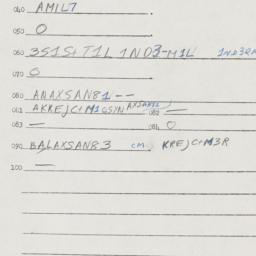 040 AMIL7
050 O
060 3S1S+T1L 1ND3-M1L 1ND3R
070 O
080 ANAXSAN81 --
081 AKREJC+M1GSYN 082 —
083 — 084 O
090 BALAXSAN83 cm, KREJC+M3R
200 —